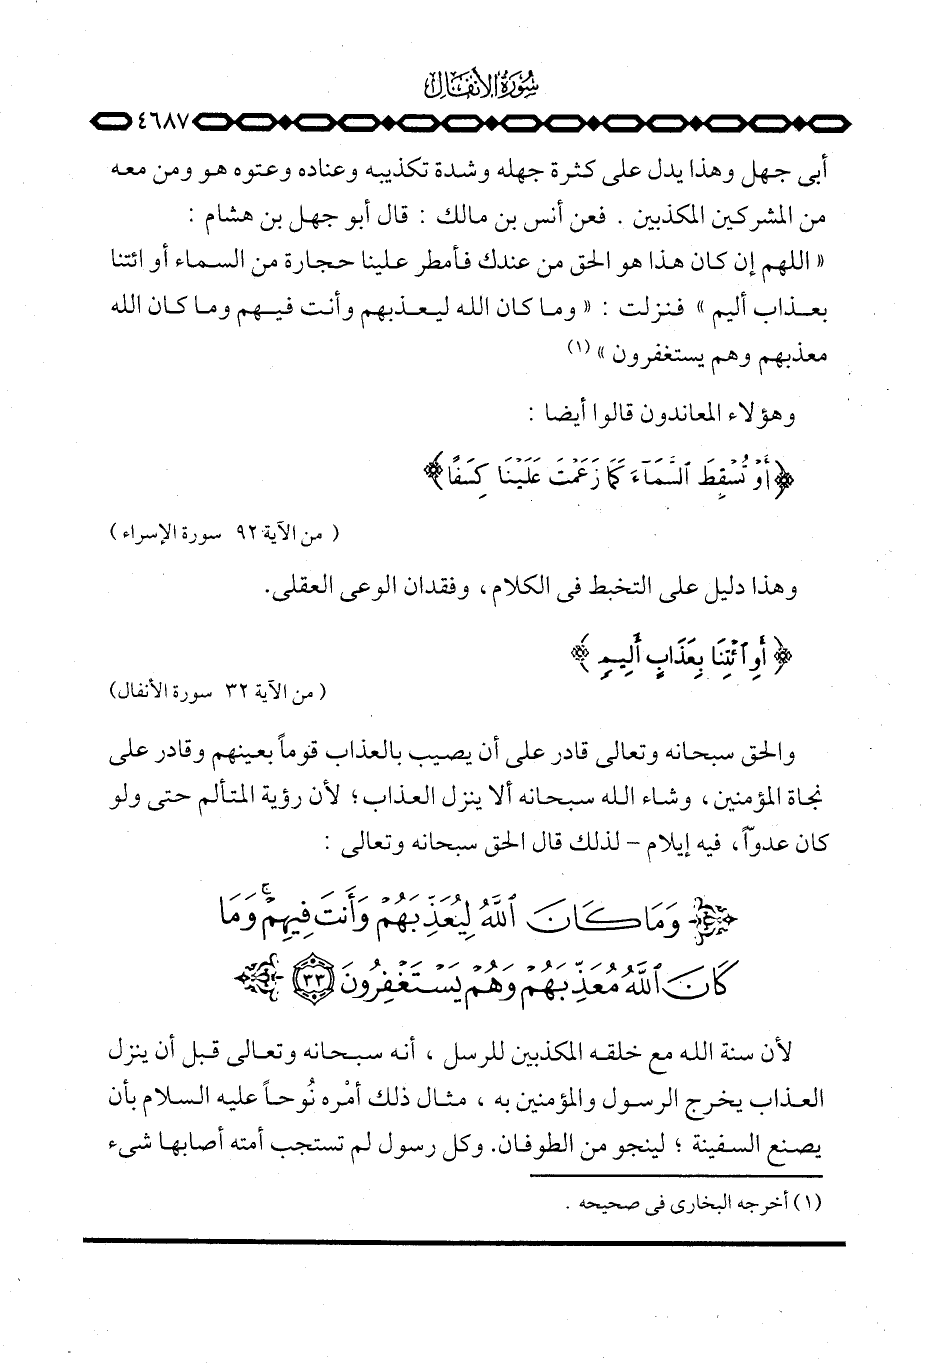 سُورَةُ الأَنفَال
٤٦٨٧
أبى جهل وهذا يدل على كثرة جهله وشدة تكذيبه وعناده وعتوه هو ومن معه
من المشركين المكذبين . فعن أنس بن مالك : قال أبو جهل بن هشام :
« اللهم إن كان هذا هو الحق من عندك فأمطر علينا حجارة من السماء أو ائتنا
بعذاب أليم » فنزلت : « وما كان الله ليعذبهم وأنت فيهم وما كان الله
معذبهم وهم يستغفرون » (١)
وهؤلاء المعاندون قالوا أيضا :
﴿ أَوْ تُسْقِطَ السَّمَاءَ كَمَا زَعَمْتَ عَلَيْنَا كِسَفًا ﴾
( من الآية ٩٢ سورة الإسراء )
وهذا دليل على التخبط فى الكلام ، وفقدان الوعى العقلى.
﴿ أَوِ ائْتِنَا بِعَذَابٍ أَلِيمٍ ﴾
( من الآية ٣٢ سورة الأنفال)
والحق سبحانه وتعالى قادر على أن يصيب بالعذاب قوماً بعينهم وقادر على
نجاة المؤمنين ، وشاء الله سبحانه ألا ينزل العذاب؛ لأن رؤية المتألم حتى ولو
كان عدوّاً، فيه إيلام - لذلك قال الحق سبحانه وتعالى :
﴿ وَمَا كَانَ اللَّهُ لِيُعَذِّبَهُمْ وَأَنتَ فِيهِمْ ۚ وَمَا
كَانَ اللَّهُ مُعَذِّبَهُمْ وَهُمْ يَسْتَغْفِرُونَ ٣٣ ﴾
لأن سنة الله مع خلقه المكذبين للرسل ، أنه سبحانه وتعالى قبل أن ينزل
العذاب يخرج الرسول والمؤمنين به ، مثال ذلك أمْره نُوحاً عليه السلام بأن
يصنع السفينة ؛ لينجو من الطوفان. وكل رسول لم تستجب أمته أصابها شىء
(١) أخرجه البخارى فى صحيحه .